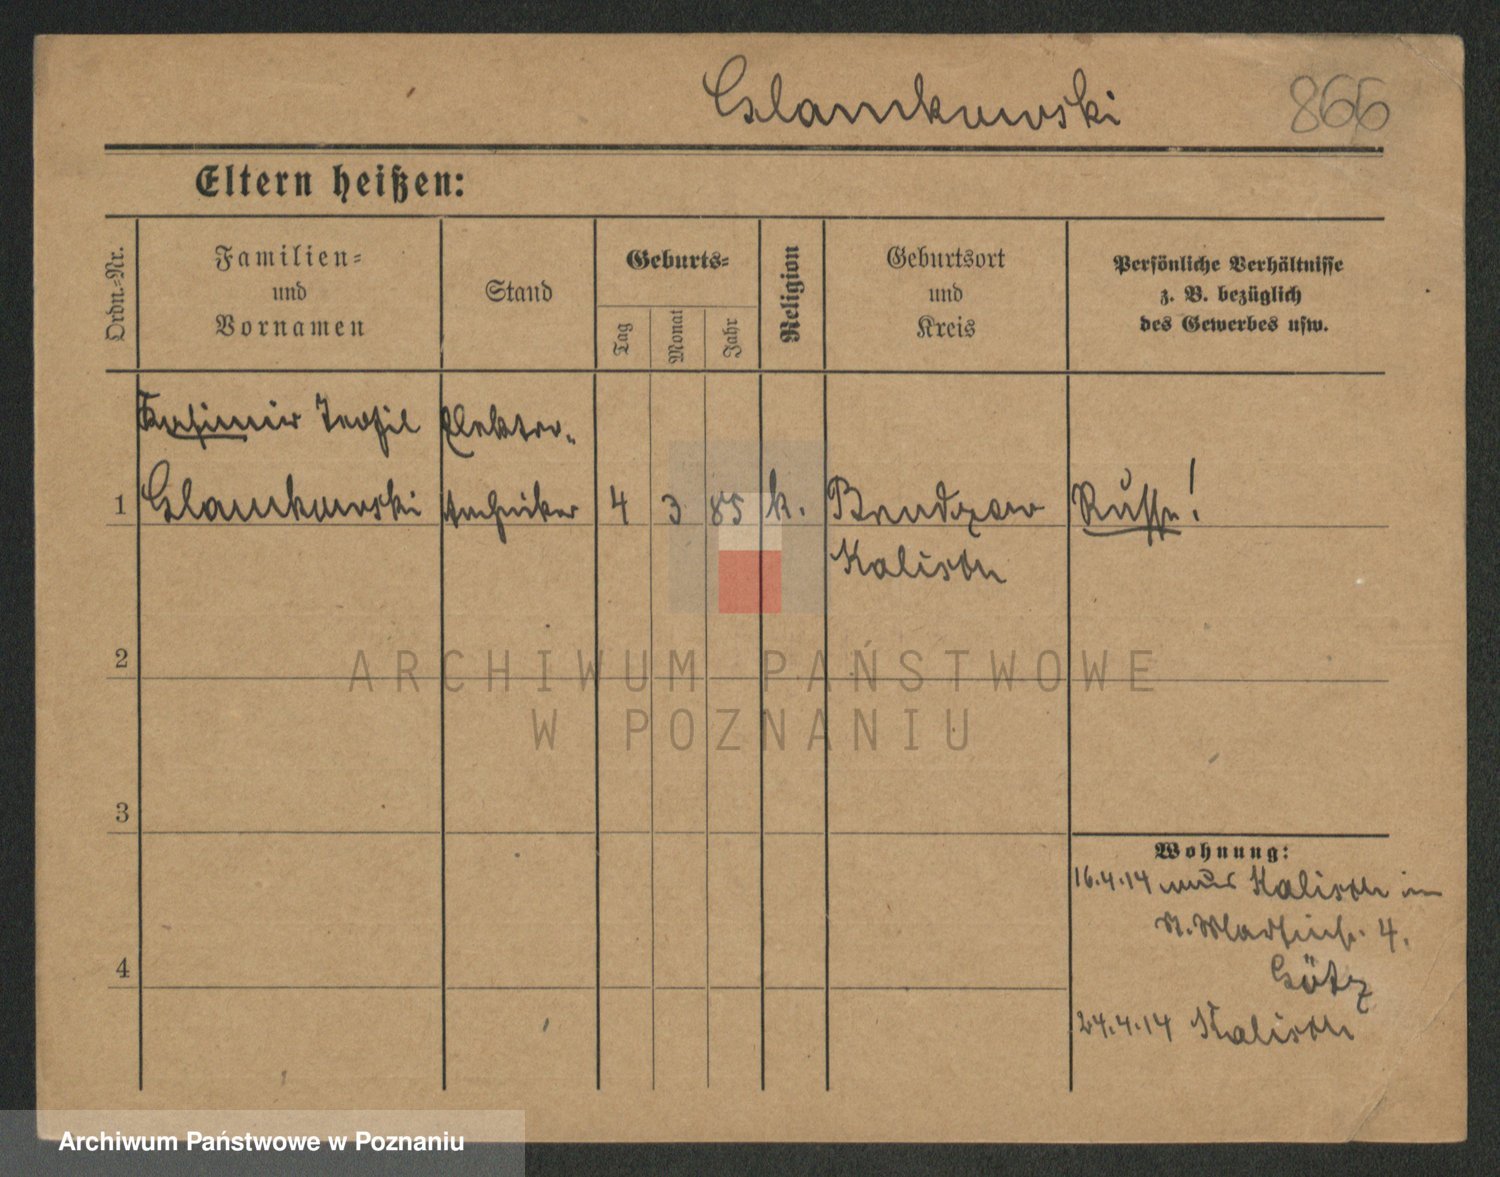 Glamkowski 866
Eltern heißen:
Ordn.-Nr.
Familien-
und
Vornamen
Stand
Geburts-
Tag
Monat
Jahr
Religion
Geburtsort
und
Kreis
Persönliche Verhältnisse
z. B. bezüglich
des Gewerbes usw.
Kasimir Teofil Elektro-
1 Glamkowski techniker 4 3 85 k. Brudzew Russe!
Kalisch
2
ARCHIWUM PAŃSTWOWE
W POZNANIU
3
Wohnung:
16.4.14 aus Kalisch in
4.
4
Götz
24.4.14 Kalisch
Archiwum Państwowe w Poznaniu